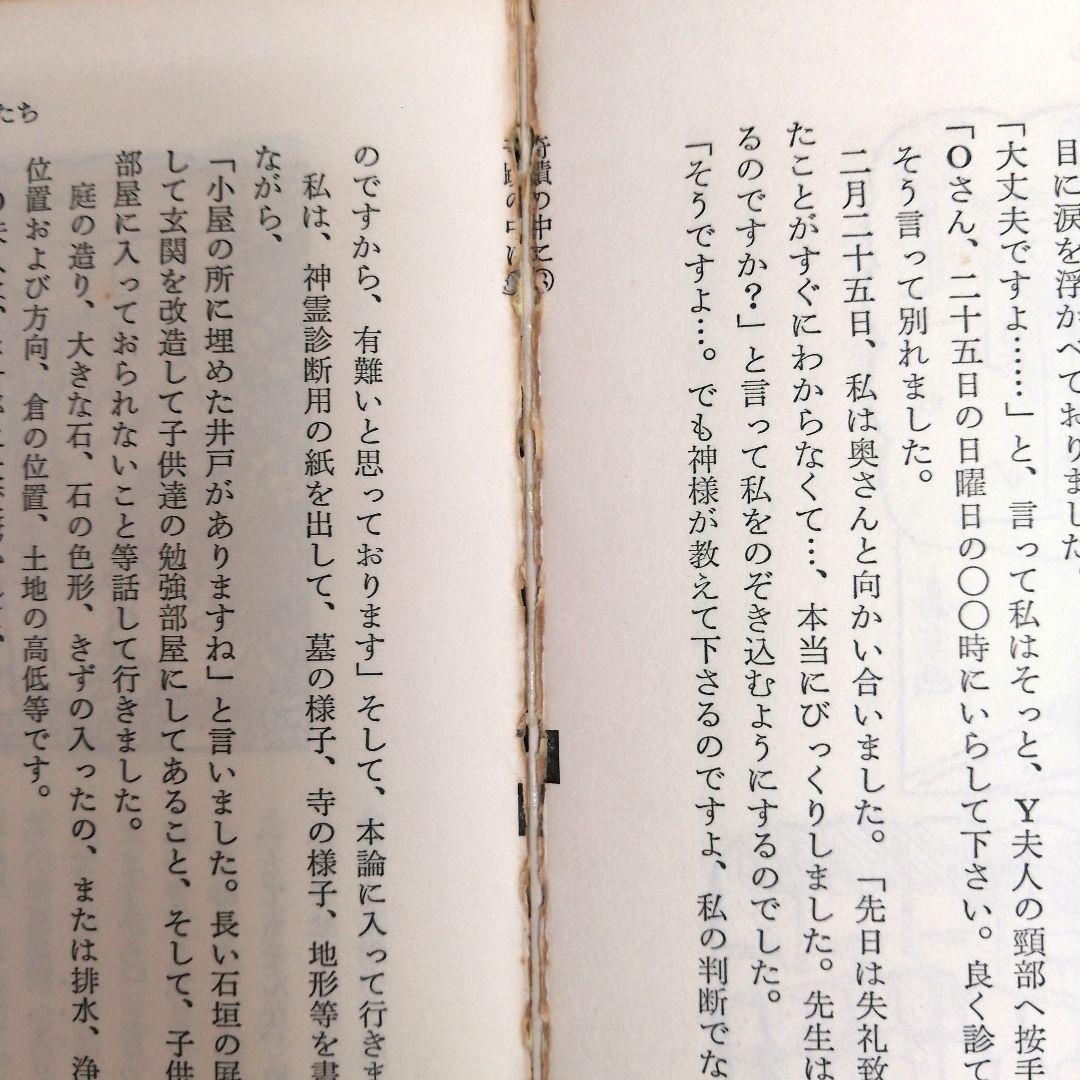 目に涙を浮かべておりました。
「大丈夫ですよ……」と、言って私はそっと、Y夫人の頸部へ按手
「Oさん、二十五日の日曜日の〇〇時にいらして下さい。良く診て
そう言って別れました。
二月二十五日、私は奥さんと向かい合いました。「先日は失礼致
たことがすぐにわからなくて…、本当にびっくりしました。先生は
るのですか？」と言って私をのぞき込むようにするのでした。
「そうですよ…。でも神様が教えて下さるのですよ、私の判断でな
のですから、有難いと思っております」そして、本論に入って行きま
私は、神霊診断用の紙を出して、墓の様子、寺の様子、地形等を書
ながら、
「小屋の所に埋めた井戸がありますね」と言いました。長い石垣の
して玄関を改造して子供達の勉強部屋にしてあること、そして、子供
部屋に入っておられないこと等話して行きました。
庭の造り、大きな石、石の色形、きずの入ったの、または排水、浄
位置および方向、倉の位置、土地の高低等です。
たち